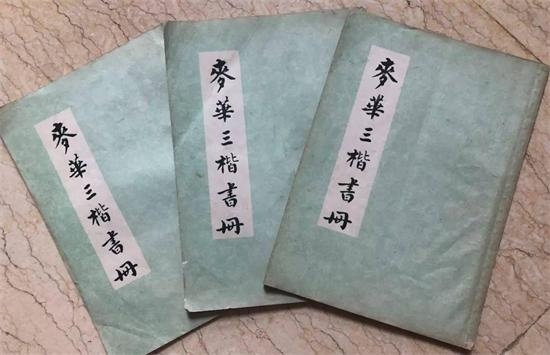 麥華三楷書冊
麥華三楷書冊
麥華三楷書冊